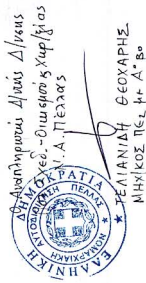 Ο Αναπληρωτής Δ/ντής Δ/νσης
Πολεοδ.-Οικισμού & Χωρ/ξίας
Ν.Α. Πέλλας
ΕΛΛΗΝΙΚΗ ΔΗΜΟΚΡΑΤΙΑ
ΝΟΜΑΡΧΙΑΚΗ ΑΥΤΟΔΙΟΙΚΗΣΗ ΠΕΛΛΑΣ
ΤΕΛΙΑΝΙΔΗΣ ΘΕΟΧΑΡΗΣ
ΜΗΧ/ΚΟΣ ΠΕΣ με Α' βο